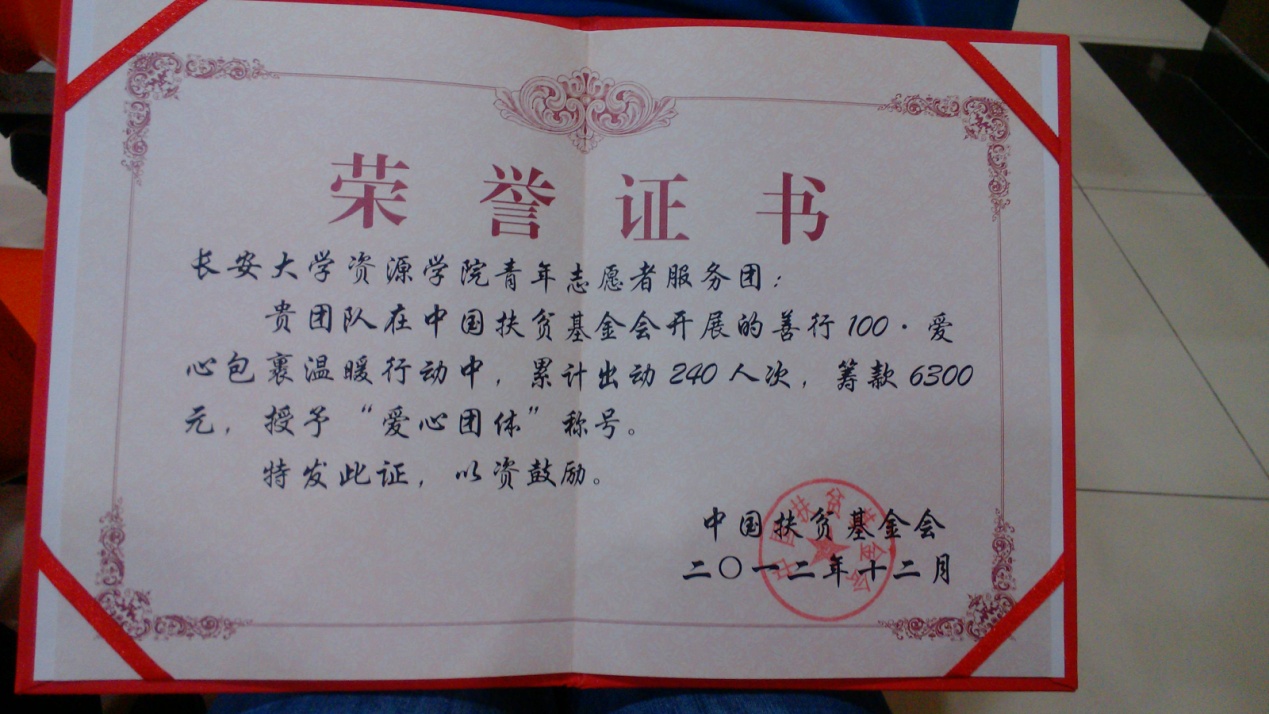 荣誉证书
长安大学资源学院青年志愿者服务团：
贵团队在中国扶贫基金会开展的善行100·爱
心包裹温暖行动中，累计出动240人次，筹款6300
元，授予“爱心团体”称号。
特发此证，以资鼓励。
中国扶贫基金会
二〇一二年十二月
中国扶贫基金会